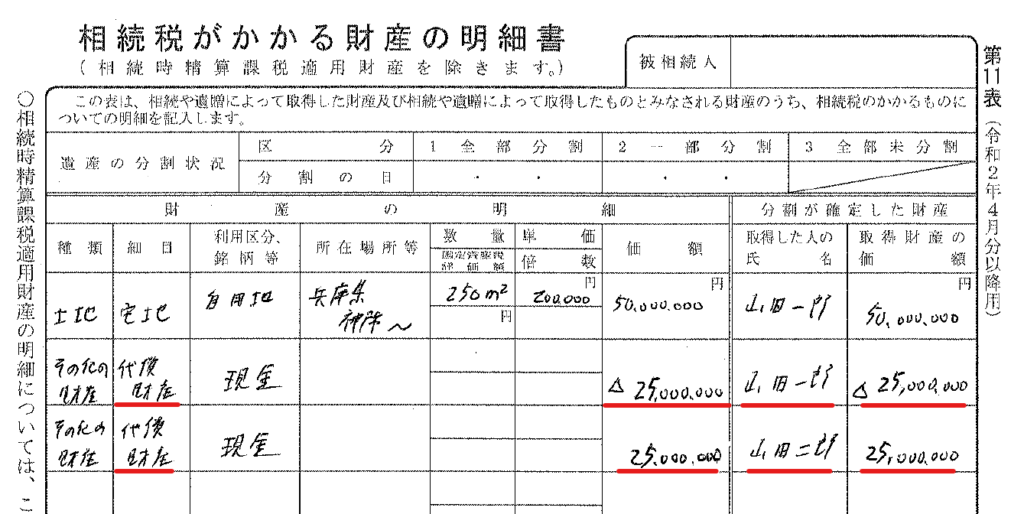 相続税がかかる財産の明細書
(相続時精算課税適用財産を除きます。)
被相続人
第11表(令和2年4月分以降用)
○相続時精算課税適用財産の明細については、こ
この表は、相続や遺贈によって取得した財産及び相続や遺贈によって取得したものとみなされる財産のうち、相続税のかかるものに
ついての明細を記入します。
遺産の分割状況 区分 1 全部分割 2 一部分割 3 全部未分割
分割の日 ・ ・ ・ ・
財産の明細 分割が確定した財産
種類 細目 利用区分、銘柄等 所在場所等 数量 単価 価額 取得した人の氏名 取得財産の価額
固定資産税評価額 倍数
円 円 円
土地 宅地 自用地 兵庫県 250m² 200,000 50,000,000 山田一郎 50,000,000
円
その他の財産 代償財産 現金 △25,000,000 山田一郎 △25,000,000
その他の財産 代償財産 現金 25,000,000 山田二郎 25,000,000